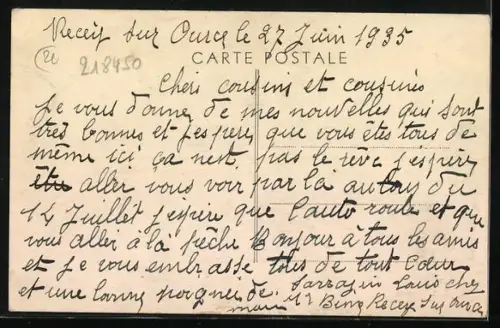 Recey sur Ource le 27 Juin 1935
CARTE POSTALE
21
218450
Chers cousins et cousines
Je vous donne de mes nouvelles qui sont
très bonnes et jespère que vous etes tous de
même ici ça nest pas le rêve jespère
aller vous voir par la autour du
14 Juillet jespère que lauto roule et que
vous aller à la pêche Bonjour à tous les amis
et je vous embrasse tous de tout cœur
et une bonne poignée de Sarrazin Louis chez
main Mr Bing Recey sur Ource